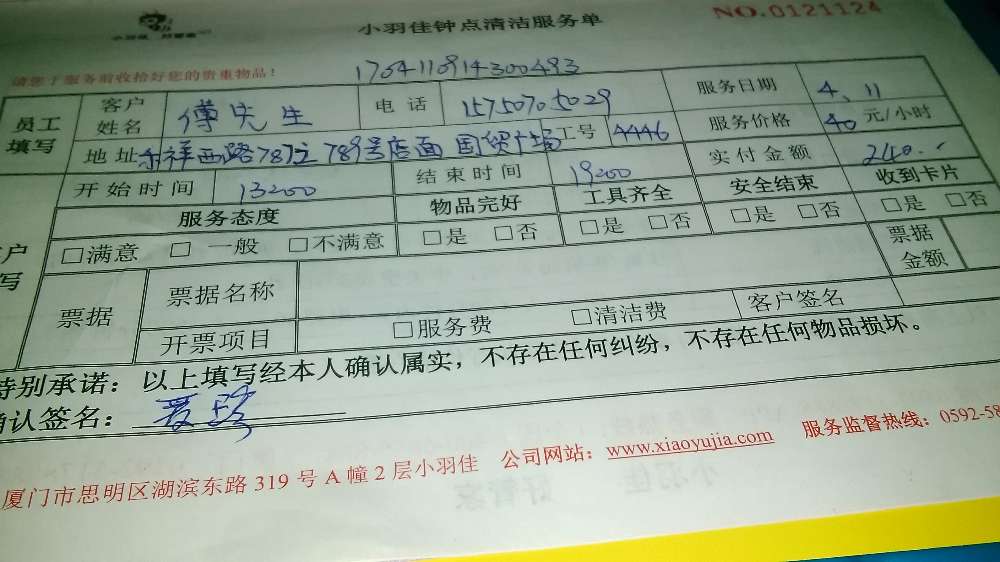 小羽佳 好管家
小羽佳钟点清洁服务单
NO.0121124
请您于服务前收拾好您的贵重物品！
1704110914300493
员工填写 客户姓名 傅先生 电话 15750705029 服务日期 4、11
地址 禾祥西路787之789号店面 国贸广场 工号 4446 服务价格 40 元/小时
开始时间 13:00 结束时间 19:00 实付金额 240.--
服务态度 物品完好 工具齐全 安全结束 收到卡片
□满意 □一般 □不满意 □是 □否 □是 □否 □是 □否 □是 □否
票据 票据名称 票据金额
开票项目 □服务费 □清洁费 客户签名
特别承诺：以上填写经本人确认属实，不存在任何纠纷，不存在任何物品损坏。
确认签名：
厦门市思明区湖滨东路319号A幢2层小羽佳 公司网站：www.xiaoyujia.com 服务监督热线：0592-58